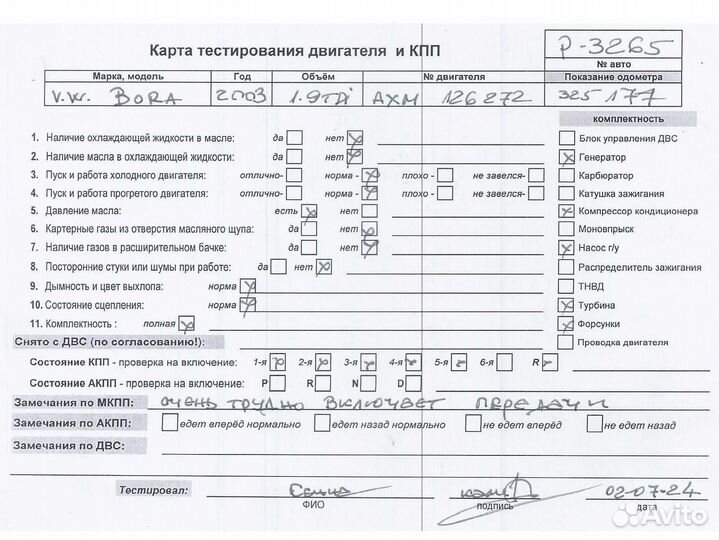 Карта тестирования двигателя и КПП
P-3265
№ авто
Марка, модель Год Объём № двигателя Показание одометра
V.W. BORA 2003 1.9TDi AXM 126272 325177
комплектность
1. Наличие охлаждающей жидкости в масле: да нет
2. Наличие масла в охлаждающей жидкости: да нет
3. Пуск и работа холодного двигателя: отлично- норма - плохо - не завелся-
4. Пуск и работа прогретого двигателя: отлично- норма - плохо - не завелся-
5. Давление масла: есть нет
6. Картерные газы из отверстия масляного щупа: да нет
7. Наличие газов в расширительном бачке: да нет
8. Посторонние стуки или шумы при работе: да нет
9. Дымность и цвет выхлопа: норма
10. Состояние сцепления: норма
11. Комплектность : полная
Блок управления ДВС
Генератор
Карбюратор
Катушка зажигания
Компрессор кондиционера
Моновпрыск
Насос г/у
Распределитель зажигания
ТНВД
Турбина
Форсунки
Проводка двигателя
Снято с ДВС (по согласованию!):
Состояние КПП - проверка на включение: 1-я 2-я 3-я 4-я 5-я 6-я R
Состояние АКПП - проверка на включение: P R N D
Замечания по МКПП: очень трудно включает передачи
Замечания по АКПП: едет вперёд нормально едет назад нормально не едет вперёд не едет назад
Замечания по ДВС:
Тестировал: 02-07-24
ФИО подпись дата
Avito